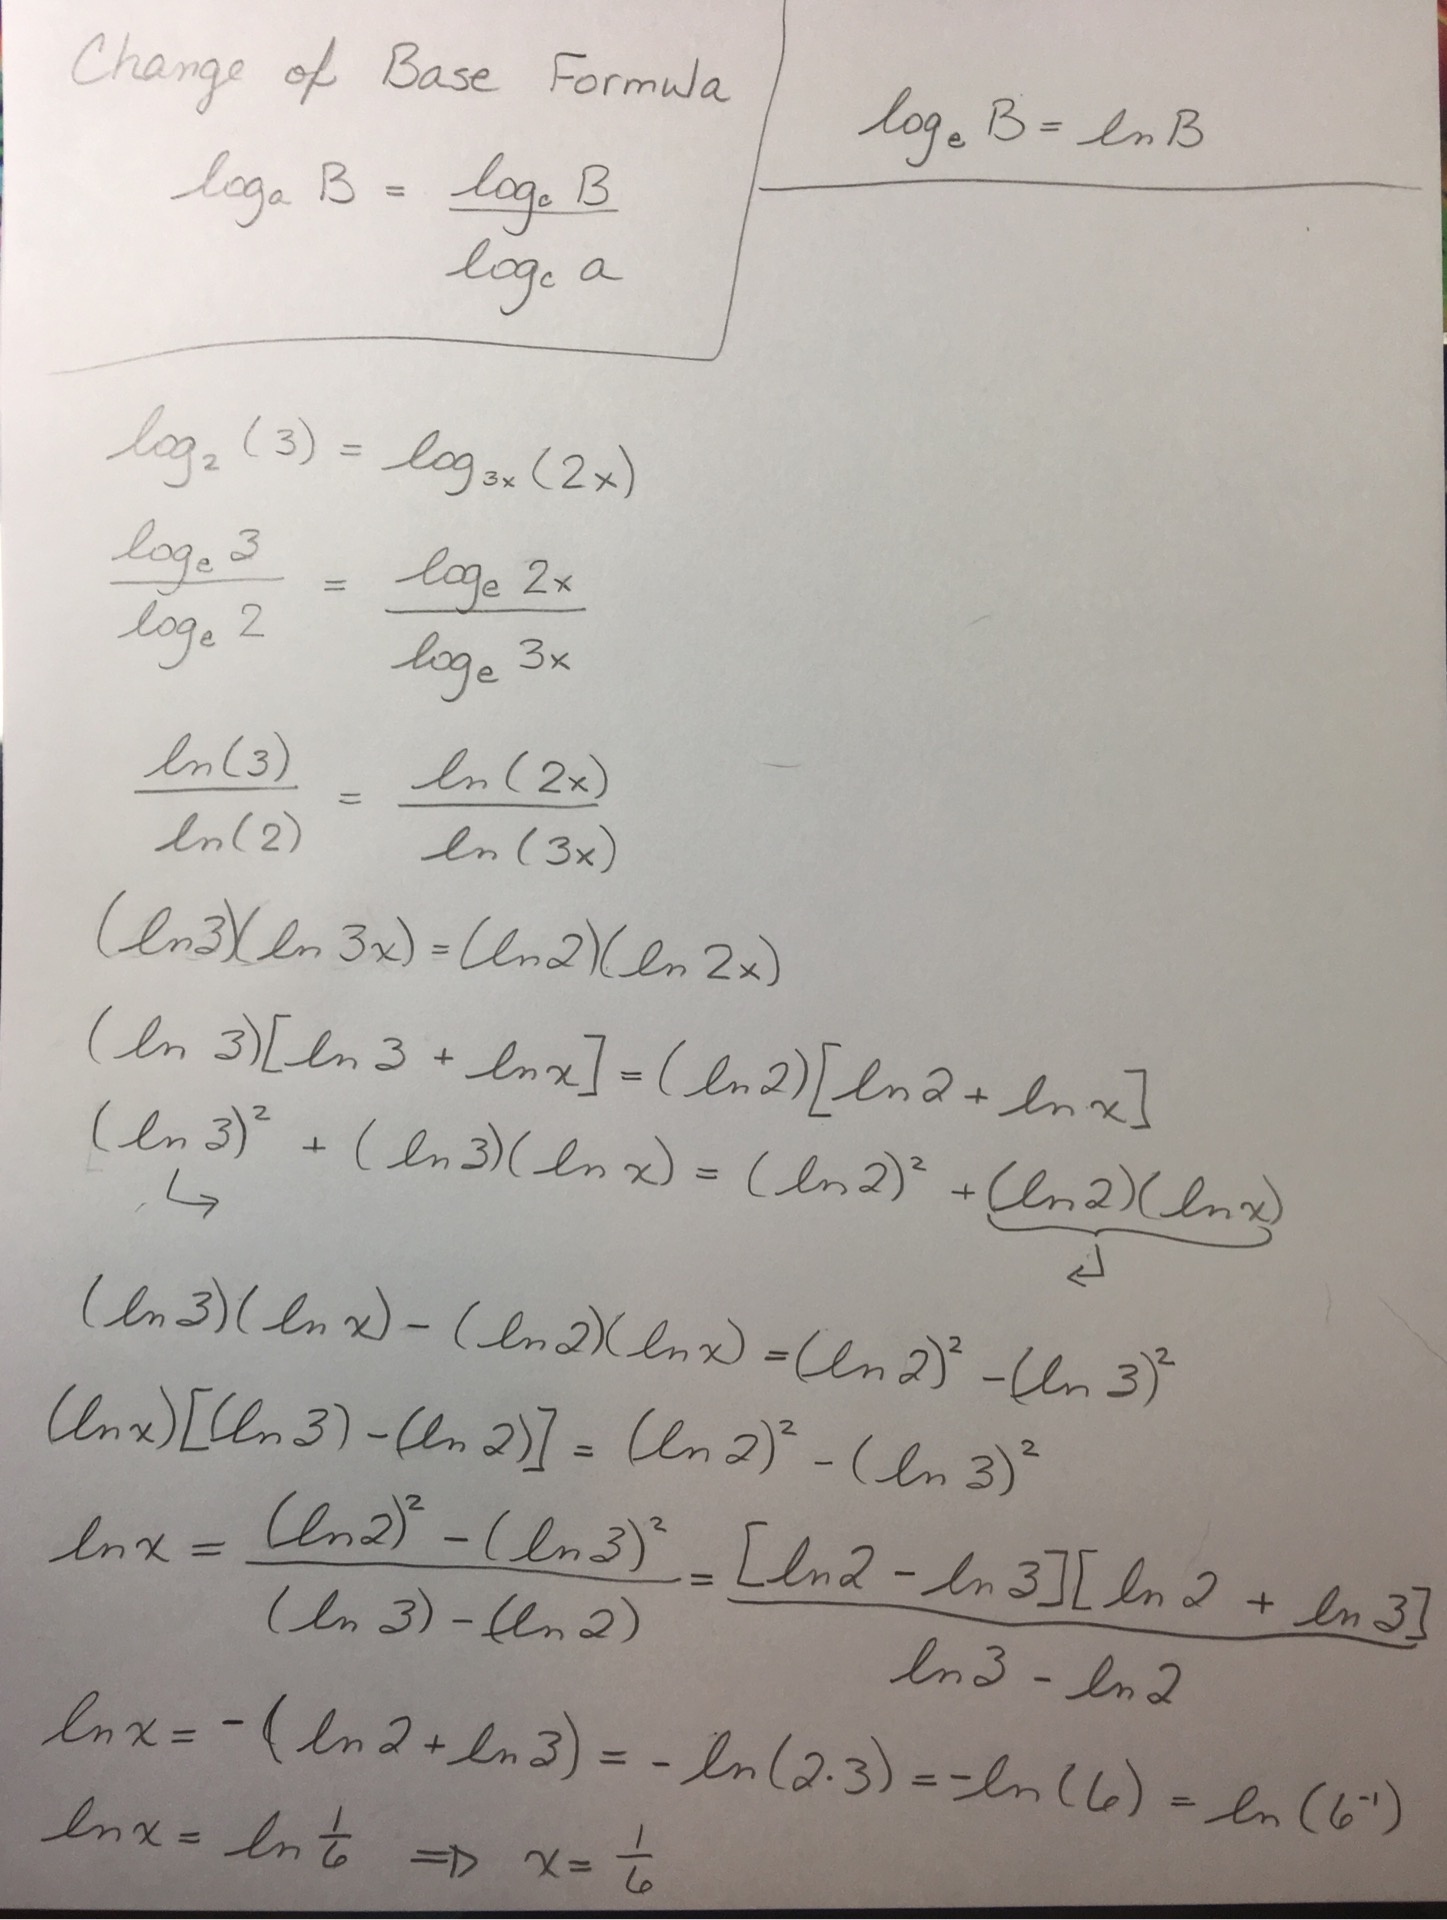 Change of Base Formula
logₐ B = log꜀ B / log꜀ a
logₑ B = ln B
log₂ (3) = log₃ₓ (2x)
logₑ 3 / logₑ 2 = logₑ 2x / logₑ 3x
ln(3) / ln(2) = ln(2x) / ln(3x)
(ln3)(ln 3x) = (ln2)(ln 2x)
(ln 3)[ln 3 + ln x] = (ln2)[ln2 + ln x]
(ln 3)² + (ln3)(ln x) = (ln2)² + (ln2)(ln x)
(ln3)(ln x) - (ln2)(ln x) = (ln2)² - (ln 3)²
(ln x)[(ln3) - (ln 2)] = (ln 2)² - (ln 3)²
ln x = (ln2)² - (ln3)² / (ln 3) - (ln 2) = [ln2 - ln 3][ln 2 + ln 3] / ln3 - ln2
ln x = -(ln2 + ln3) = -ln(2·3) = -ln(6) = ln(6⁻¹)
ln x = ln 1/6 ⇒ x = 1/6